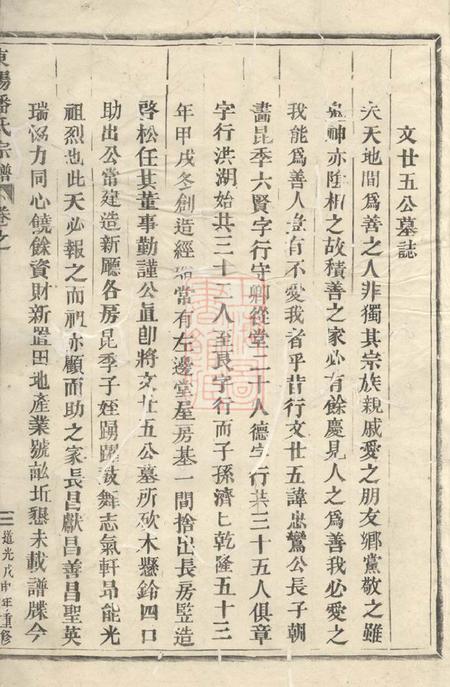 文廿五公墓誌
夫天地間爲善之人非獨其宗族親戚愛之朋友鄉黨敬之雖
鬼神亦陰相之故積善之家必有餘慶見人之爲善我必愛之
我能爲善人豈有不愛我者乎昔行文廿五諱忠鸞公長子朝
畵昆季六賢字行守卿從堂二十人德字行共三十五人俱章
字行洪湖始共三十三人至良字行而子孫濟匕乾隆五十三
年甲戌冬創造經堂常有左邊堂屋房基一間捨出長房竪造
啓松任其董事勤謹公眞卽將文廿五公墓所砍木懸鈴四口
助出公當建造新廳各房昆季子姪踴躍鼓舞志氣軒昻能光
祖烈也此天必報之而祖亦顧而助之家長昌獻昌善昌聖英
瑞協力同心饒餘資財新置田地產業號畝坵懇未載譜牒今
東陽潘氏宗譜
卷之
三
道光戊申年重修